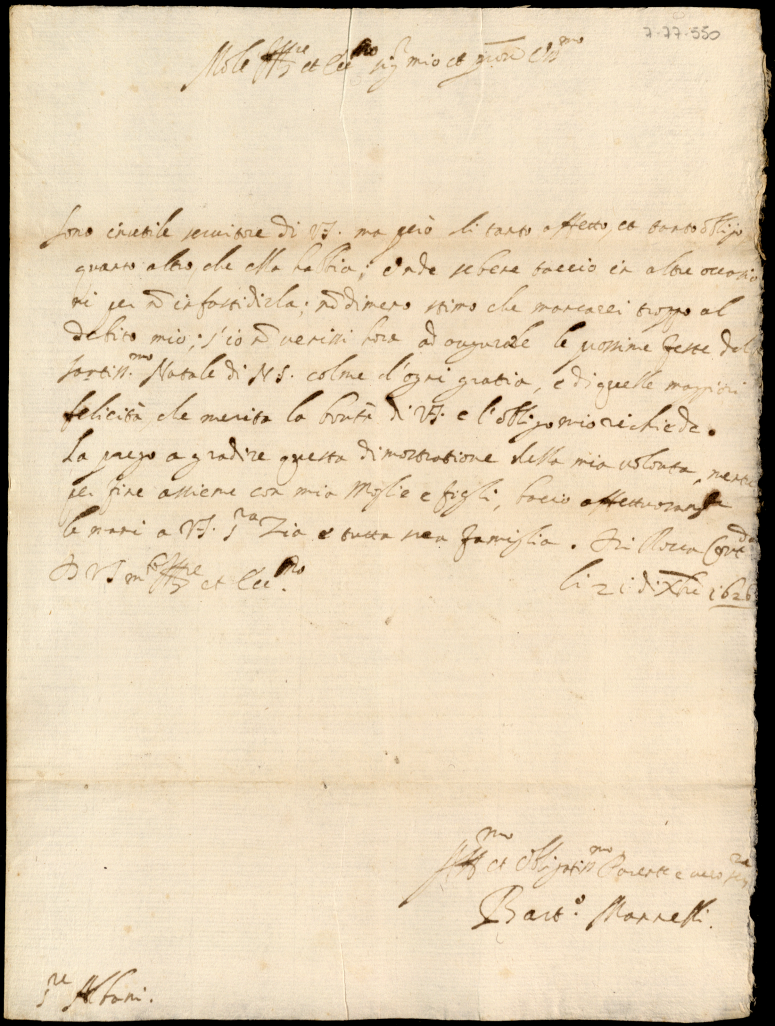 7-77-550
Molto Ill.re et Ecc.mo sig.r mio et P.ron Oss.mo
Sono inutile servitore di VS. ma però di tanto affetto, et tanto obligo
quanto altro, che ella habbia; onde sebene taccio in altre occasio
ni per nõ infastidirla; nõdimeno stimo che mancarei troppo al
debito mio; s'io nõ venissi hora ad augurarle le prossime feste del
santiss.mo Natale di NS. colme d'ogni gratia, e di quelle maggiori
felicità, che merita la bontà di VS. e l'obligo mio richiede.
La prego a gradire questa dimostratione della mia volontà, mentre
per fine assieme con mia Moglie e figli, bacio affettuosamẽte
le mani a VS. S.ra Zia e tutta sua famiglia. Di Rocca Cont.da
D VS m.to Ill.re et Ecc.mo li 21 di Xbre 1626
Aff.mo et Obligatiss.mo Parente e vero ser.re
Bart.o Mannelli.
S.re Albani.